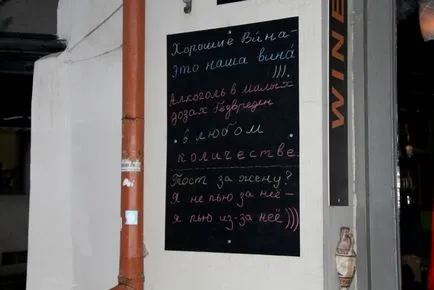 Хорошие Ви́на-
это наша вина́
))).
Алкоголь в малых
дозах безвреден
• в любом •
количестве.
Тост за жену?
Я не пью за неё-
я пью из-за неё)))
WINE